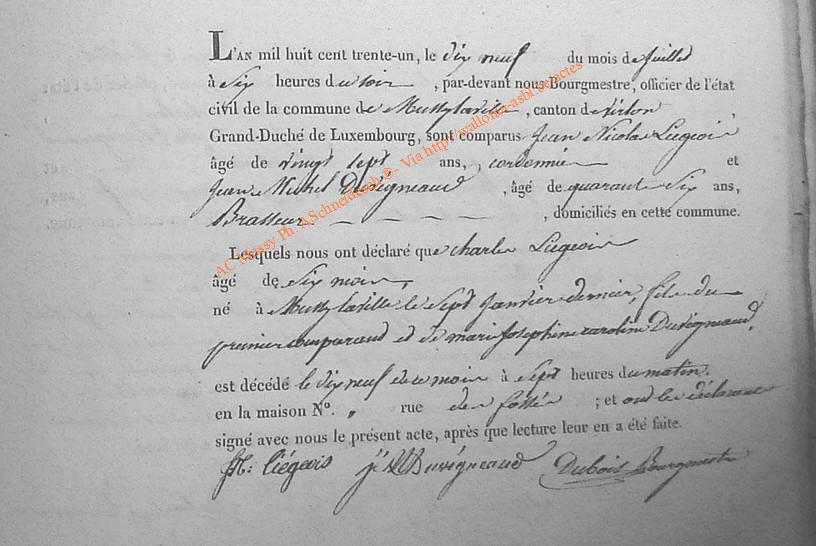 L'AN mil huit cent trente-un, le dix neuf du mois de Juillet
à Six heures du soir, par-devant nous Bourgmestre, officier de l'état
civil de la commune de Mussylaville, canton de Virton,
Grand-Duché de Luxembourg, sont comparus Jean Nicolas Liegeois
âgé de vingt sept ans, cordonnier et
Jean Michel Duvigneaud, âgé de quarante Six ans,
Brasseur, domiciliés en cette commune.
Lesquels nous ont déclaré que charles Liegeois
âgé de Six mois,
né à Mussylaville le Sept Janvier dernier, fils du
premier comparand et de marie Josephine caroline Duvigneaud,
est décédé le dix neuf de ce mois à Sept heures du matin.
en la maison No. „ rue des fossés ; et ont les déclarants
signé avec nous le présent acte, après que lecture leur en a été faite.
liégeois Duvigneaud Dubois Bourgmestre
AC Mussy Ph. ASchneidesch © - Via http://wallonia-asbl.be/actes